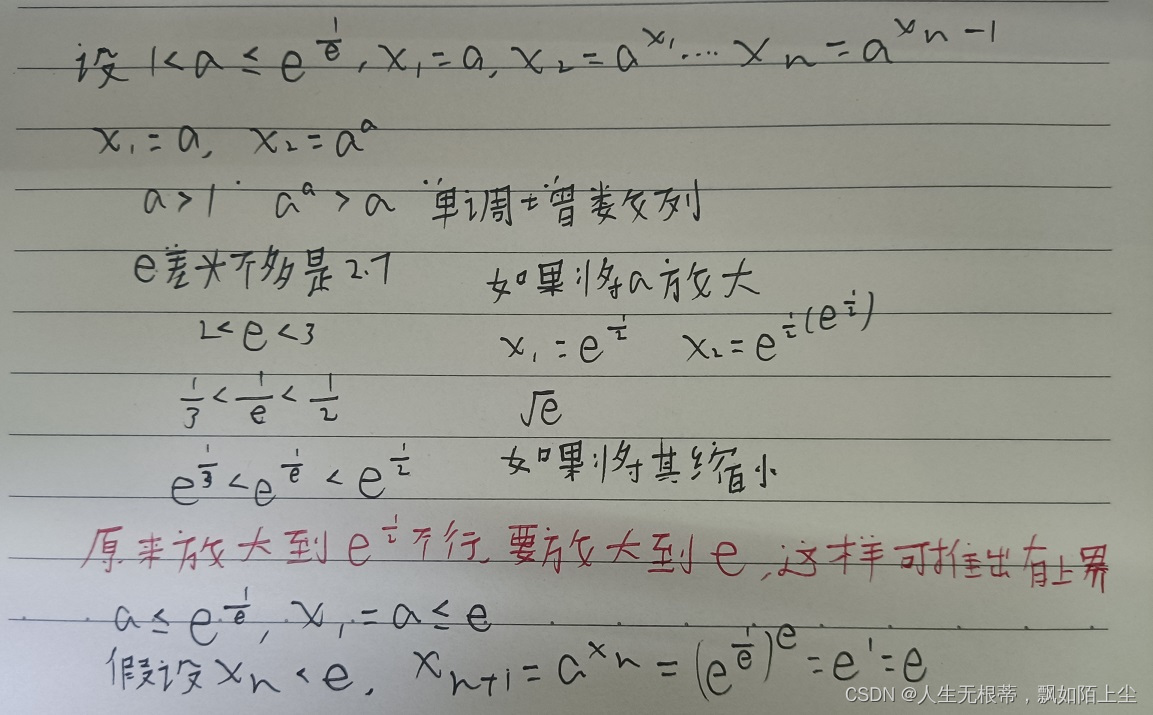 设 1<a≤e^{\frac{1}{e}}, x_1=a, x_2=a^{x_1}.... x_n=a^{x_{n-1}}
x_1=a, x_2=a^a
a>1 a^a>a 单调增数列
e差不多是2.7 如果将a放大
2<e<3 x_1=e^{\frac{1}{2}} x_2=e^{\frac{1}{2}(e^{\frac{1}{2}})}
\frac{1}{3}<\frac{1}{e}<\frac{1}{2} √e
e^{\frac{1}{3}}<e^{\frac{1}{e}}<e^{\frac{1}{2}} 如果将其缩小
原来放大到e^{\frac{1}{2}}不行,要放大到e,这样可推出有上界
a≤e^{\frac{1}{e}}, x_1=a≤e
假设x_n<e, x_{n+1}=a^{x_n}=(e^{\frac{1}{e}})^e=e^1=e
CSDN @人生无根蒂,飘如陌上尘